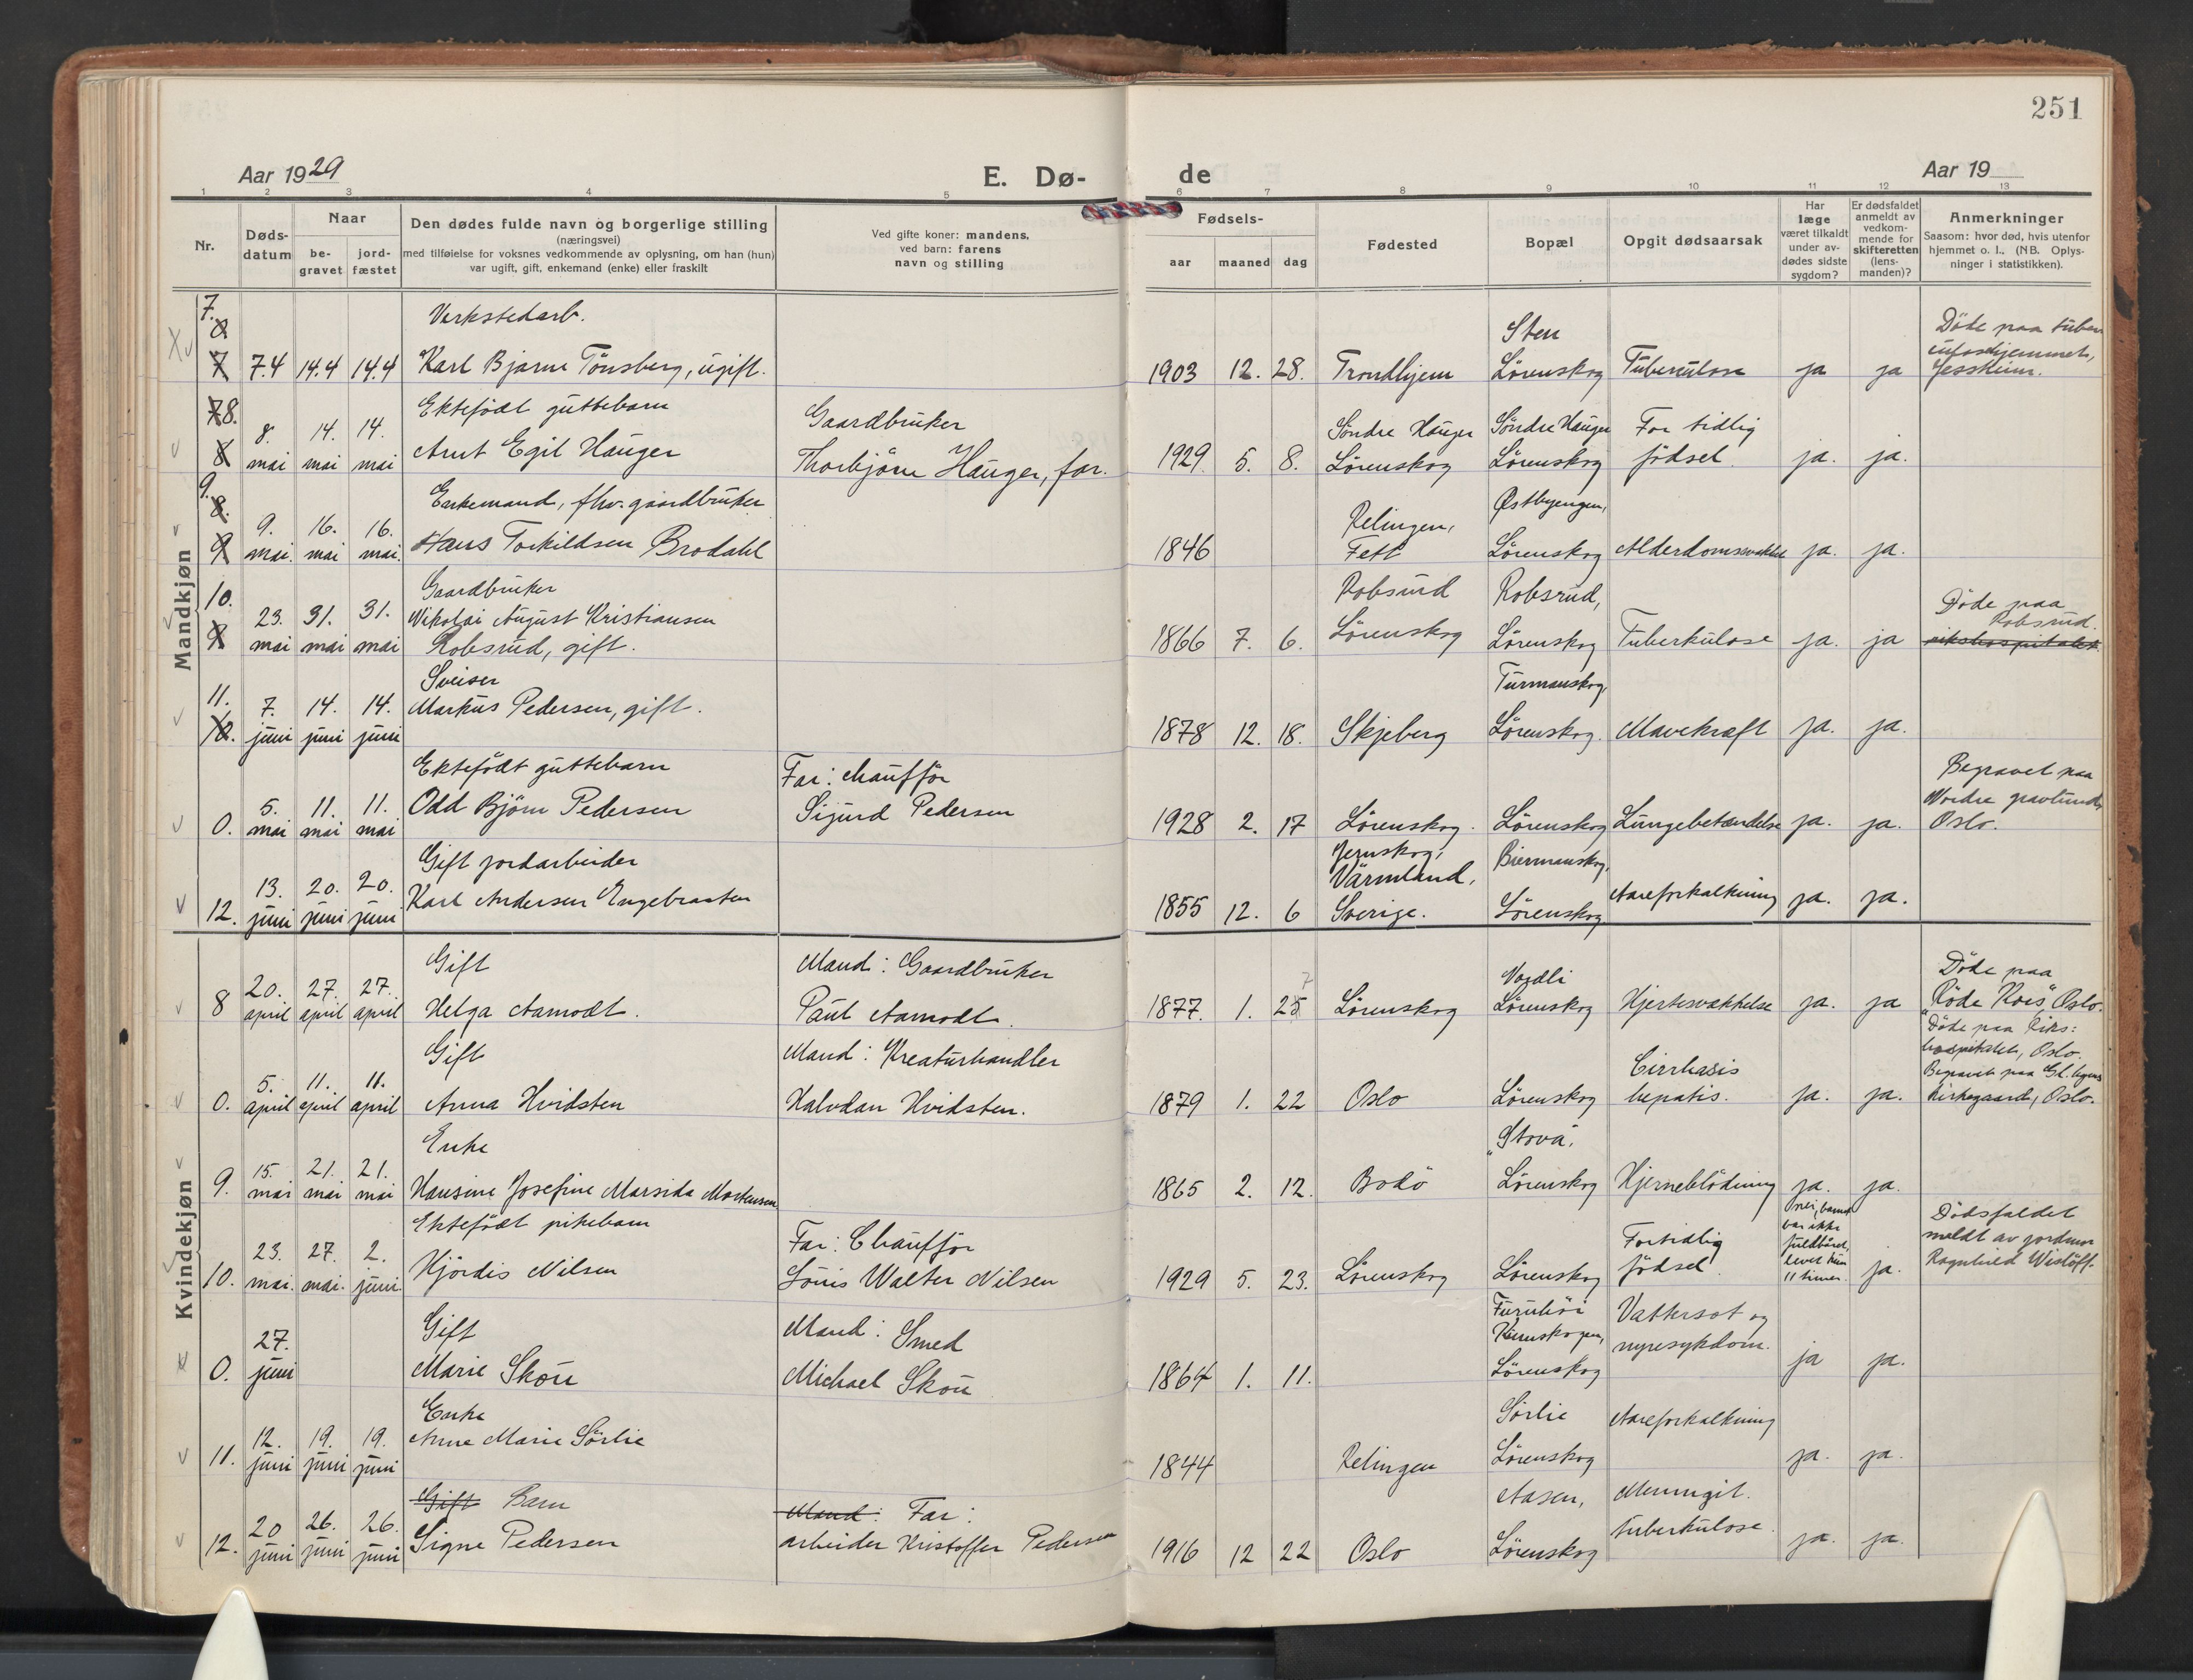 251
Aar 1929
E. Dø-
de
Aar 19
1 2 3 4 5 6 7 8 9 10 11 12 13
Nr.
Døds-
datum
Naar
be-
gravet
jord-
fæstet
Den dødes fulde navn og borgerlige stilling
(næringsvei)
med tilføielse for voksnes vedkommende av oplysning, om han (hun)
var ugift, gift, enkemand (enke) eller fraskilt
Ved gifte koner: mandens,
ved barn: farens
navn og stilling
Fødsels-
aar maaned dag
Fødested
Bopæl
Opgit dødsaarsak
Har
læge
været tilkaldt
under av-
dødes sidste
sygdom?
Er dødsfaldet
anmeldt av
vedkom-
mende for
skifteretten
(lens-
manden)?
Anmerkninger
Saasom: hvor død, hvis utenfor
hjemmet o. l., (NB. Oplys-
ninger i statistikken).
Mandkjøn
7.
8
7
Verkstedarb.
Sten
Döde paa tuber
culosehjemmet,
7.4 14.4 14.4 Karl Bjarne Tönsberg, ugift.
1903 12. 28. Trondhjem Lörenskog Tuberkulose ja ja Jessheim.
7 8.
8
Ektefödt guttebarn
Gaardbruker
Söndre Hauger Söndre Hauger For tidlig
8. 14. 14.
mai mai mai Arnt Egil Hauger
Thorbjörn Hauger, far.
1929 5. 8. Lörenskog Lörenskog födsel. ja. ja.
9.
8.
9
Enkemand, fhv. gaardbruker
Relingen, Östbyengen,
9. 16. 16.
mai. mai mai. Hans Torkildsen Brodahl
1846 Fett Lörenskog Alderdomssvakhet ja. ja.
10.
9
Gaardbruker
Robsrud Robsrud,
Döde paa
Robsrud.
23. 31. 31. Nikolai August Kristiansen
mai mai mai Robsrud, gift.
1866 7. 6. Lörenskog Lörenskog Tuberkulose ja. ja rikshospitalet.
11.
10.
Sveiser
7. 14. 14. Markus Pedersen, gift.
juni juni juni
1878 12. 18. Skjeberg Lörenskog. Mavekræft ja. ja.
Ektefödt guttebarn
Far: chaufför
Begravet paa
5. 11. 11. Odd Björn Pedersen
Sigurd Pedersen
Nordre gravlund,
0. mai mai mai
1928 2. 17 Lörenskog. Lörenskog Lungebetændelse ja. ja. Oslo.
Gift jordarbeider
Värmland,
13. 20. 20. Karl Andersen Engebraaten
12. juni juni juni
1855 12. 6 Sverige. Lörenskog Aareforkalkning ja. ja.
Kvindekjøn
Gift
Mand: Gaardbruker
Döde paa
20. 27. 27.
8 april april april Helga Aamodt.
Paul Aamodt.
1877. 1. 25 Lörenskog Lörenskog Hjertesvakhelse ja. ja "Röde Kors", Oslo.
Gift
Mand: Kreaturhandler
Cirrhosis
Döde paa Riks:
hospitalet, Oslo.
5. 11. 11.
0. april april april Anna Hvidsten
Halvdan Hvidsten.
1879 1. 22 Oslo Lörenskog hepatis. ja. ja. kirkegaard, Oslo.
Enke
"Stova",
15. 21. 21.
9. mai mai mai Hansine Josefine Marsida Mortensen
1865 2. 12. Bodö Lörenskog Hjerneblödning ja. ja.
Ektefödt pikebarn
Far: Chaufför
Fortidlig
nei, barnet
var ikke
fuldbåret,
levet kun
11 timer.
Dödsfaldet
meldt av jordmor
Ragnhild Wislöff.
23. 27. 2. Hjördis Nilsen
10. mai. mai. juni.
Louis Walter Nilsen
1929 5. 23. Lörenskog Lörenskog födsel. ja.
Gift
Mand: Smed
Vattersot og
27.
0. juni Marie Skou
Michael Skou
nyresykdom.
1864 1. 11. Lörenskog ja ja.
Enke
Sörlie Aareforkalkning
12. 19. 19. Anne Marie Sörlie
11. juni juni juni
1844 Relingen Lörenskog ja. ja.
Gift Barn
Mand: Far:
Aasen, Meningit.
20 26. 26. Signe Pedersen
12. juni juni juni
arbeider Kristoffer Pedersen
tuberkulose.
1916 12 22 Oslo Lörenskog ja. ja.